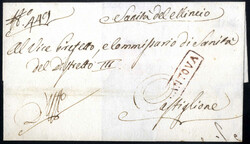 N.º 449
Sanità del Mincio
Al Vice Prefetto, e Commissario di Sanità
del Distretto III.
MANTOVA
Castiglione